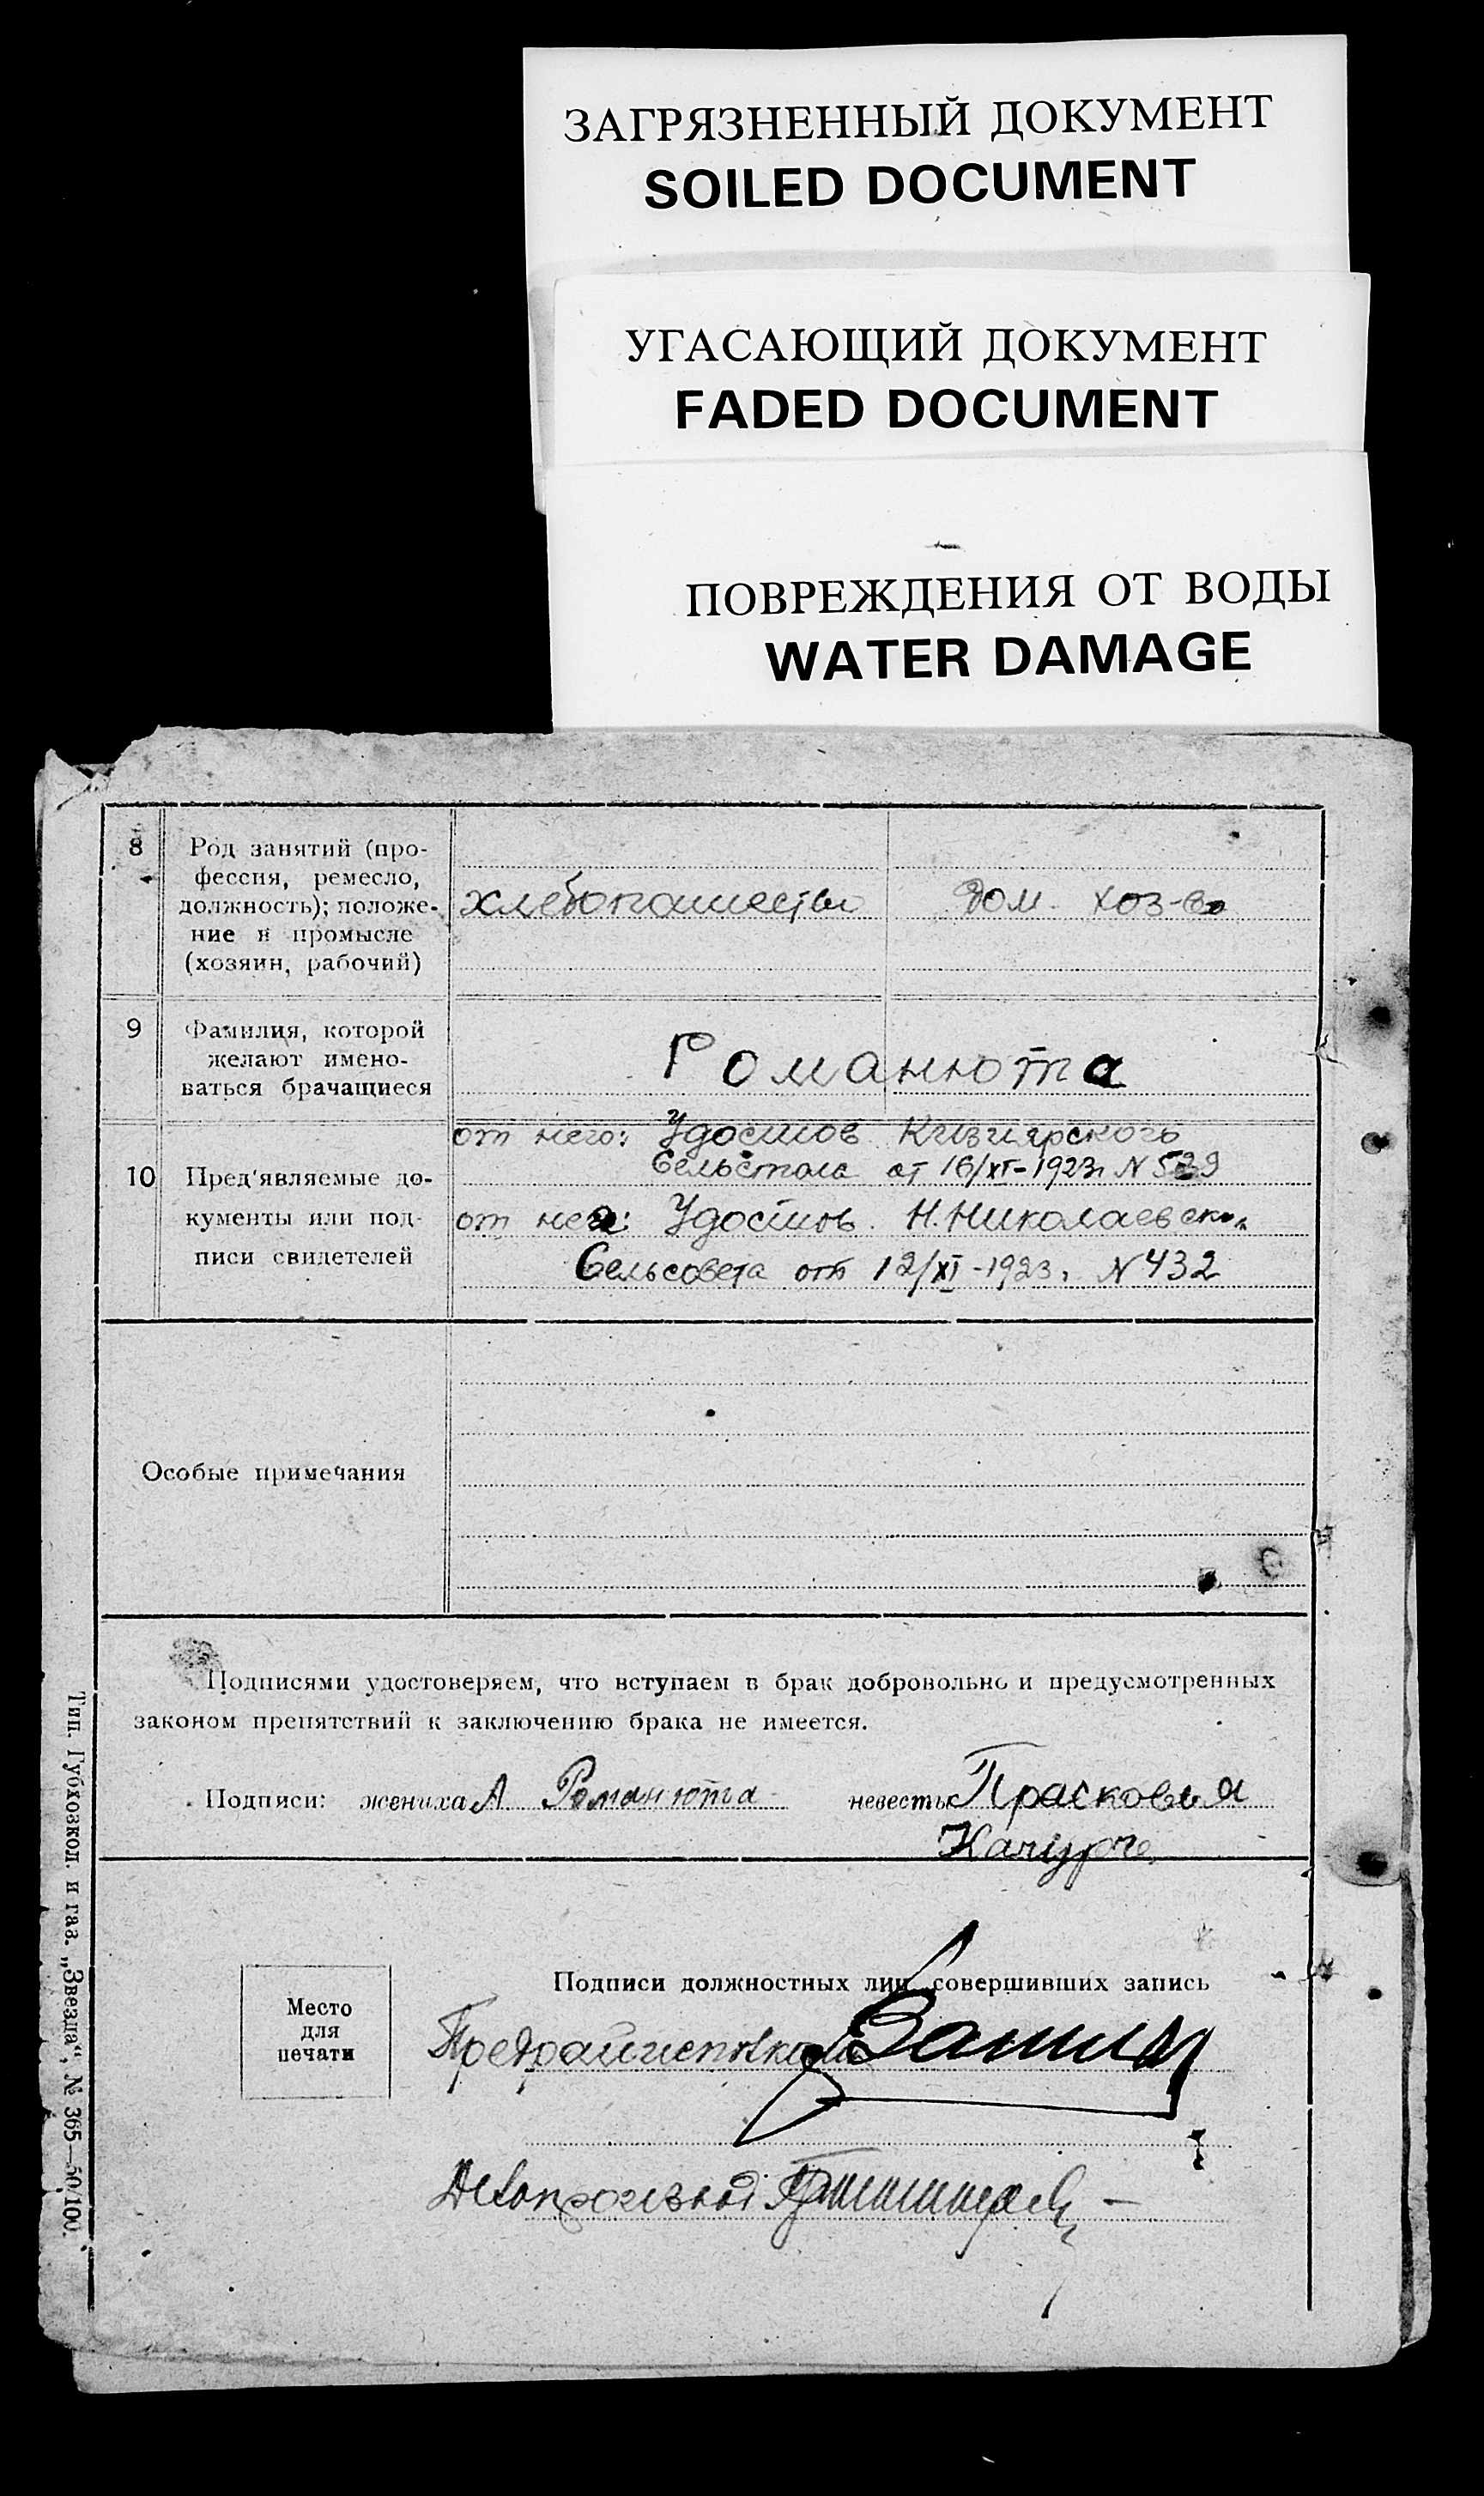 ЗАГРЯЗНЕННЫЙ ДОКУМЕНТ
SOILED DOCUMENT
УГАСАЮЩИЙ ДОКУМЕНТ
FADED DOCUMENT
ПОВРЕЖДЕНИЯ ОТ ВОДЫ
WATER DAMAGE
8
Род занятий (про-
фессия, ремесло,
должность); положе-
ние в промысле
(хозяин, рабочий)
хлебопашество
дом. хоз-во
9
Фамилия, которой
желают имено-
ваться брачащиеся
Романюта
10
Пред'являемые до-
кументы или под-
писи свидетелей
от него: Удостов.
от 16/XI-1923г N
от нее: Удостов. Н. Николаевск.
Сельсовета от 12/XI-1923. N 432
Особые примечания
Подписями удостоверяем, что вступаем в брак добровольно и предусмотренных
законом препятствий к заключению брака не имеется.
Подписи: жениха А Романюта невесты Прасковья
Место
для
печати
Подписи должностных лиц, совершивших запись
Предрайисполкома
Делопроизвод
Тип. Губхозкол. и газ. „Звезда", № 365—50/100.